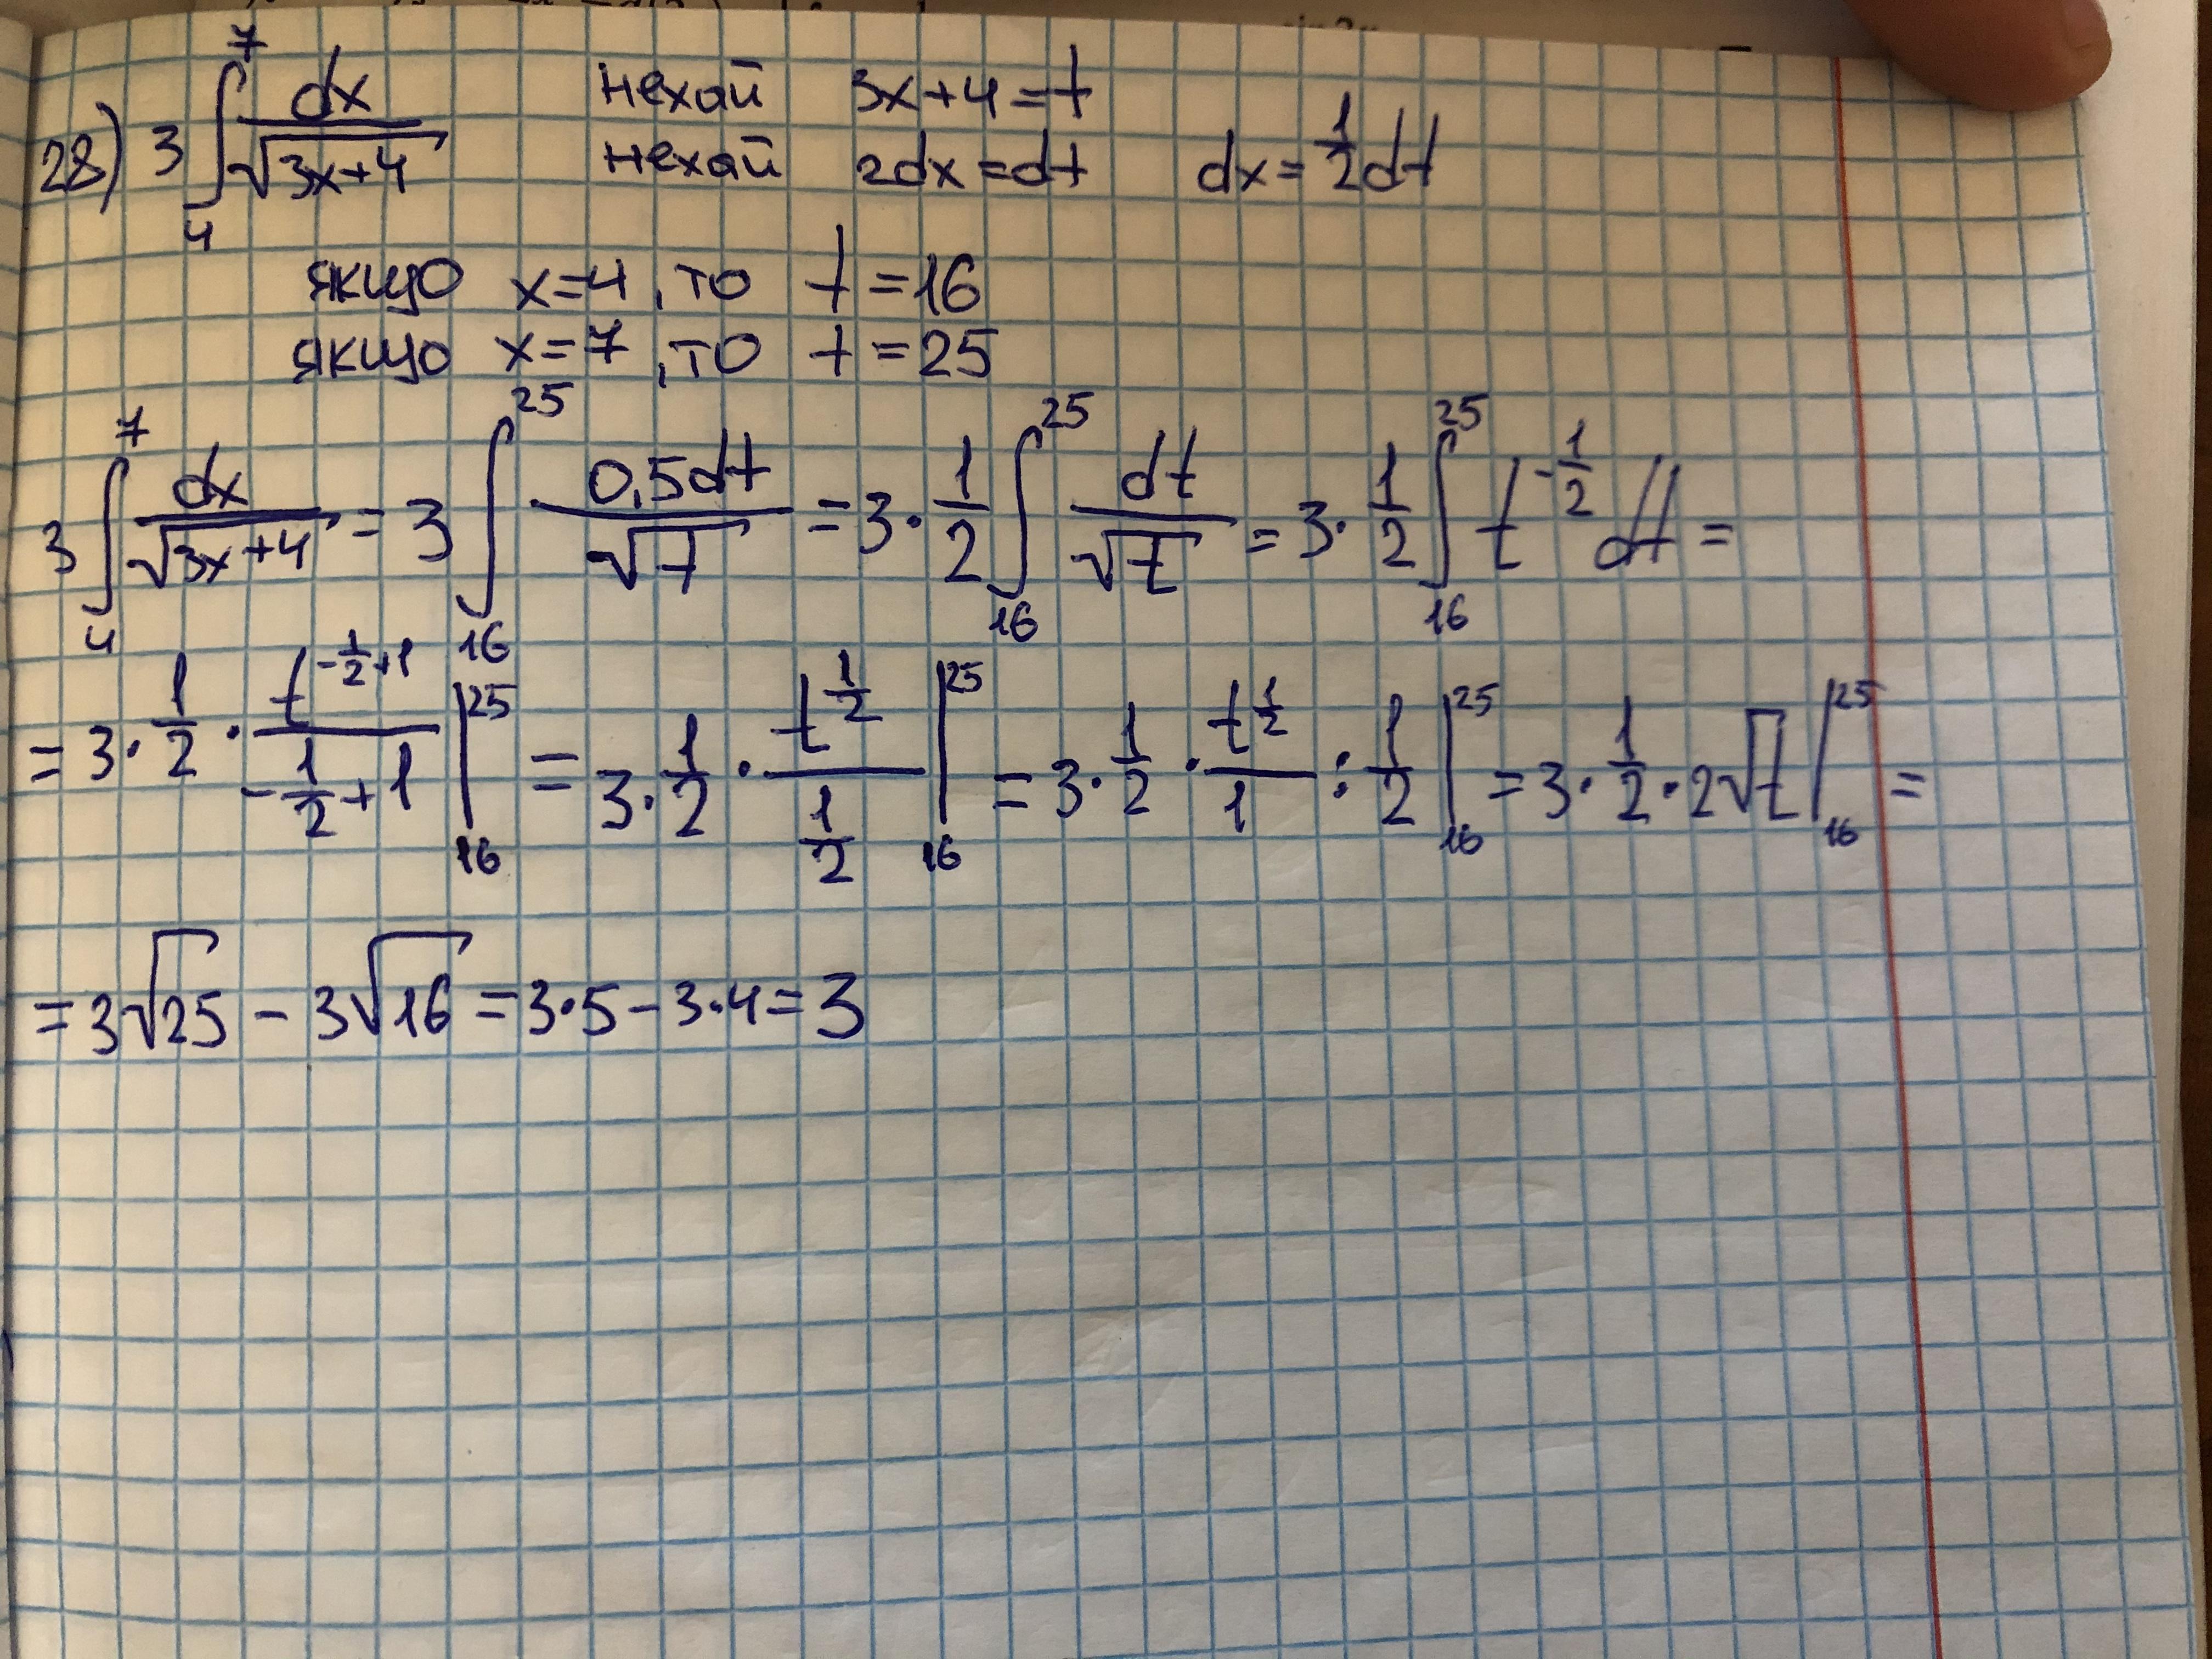 28) 3 ∫₄⁷ dx/√(3x+4) нехай 3x+4=t
нехай 2dx=dt dx=1/2dt
якщо x=4, то t=16
якщо x=7, то t=25
3 ∫₄⁷ dx/√(3x+4) = 3 ∫₁₆²⁵ 0,5dt/√t = 3·1/2 ∫₁₆²⁵ dt/√t = 3·1/2 ∫₁₆²⁵ t^(-1/2) dt =
= 3·1/2·t^(-1/2+1)/(-1/2+1) |₁₆²⁵ = 3·1/2·t^(1/2)/(1/2) |₁₆²⁵ = 3·1/2·t^(1/2)/1 : 1/2 |₁₆²⁵ = 3·1/2·2√t |₁₆²⁵ =
= 3√25 − 3√16 = 3·5−3·4=3